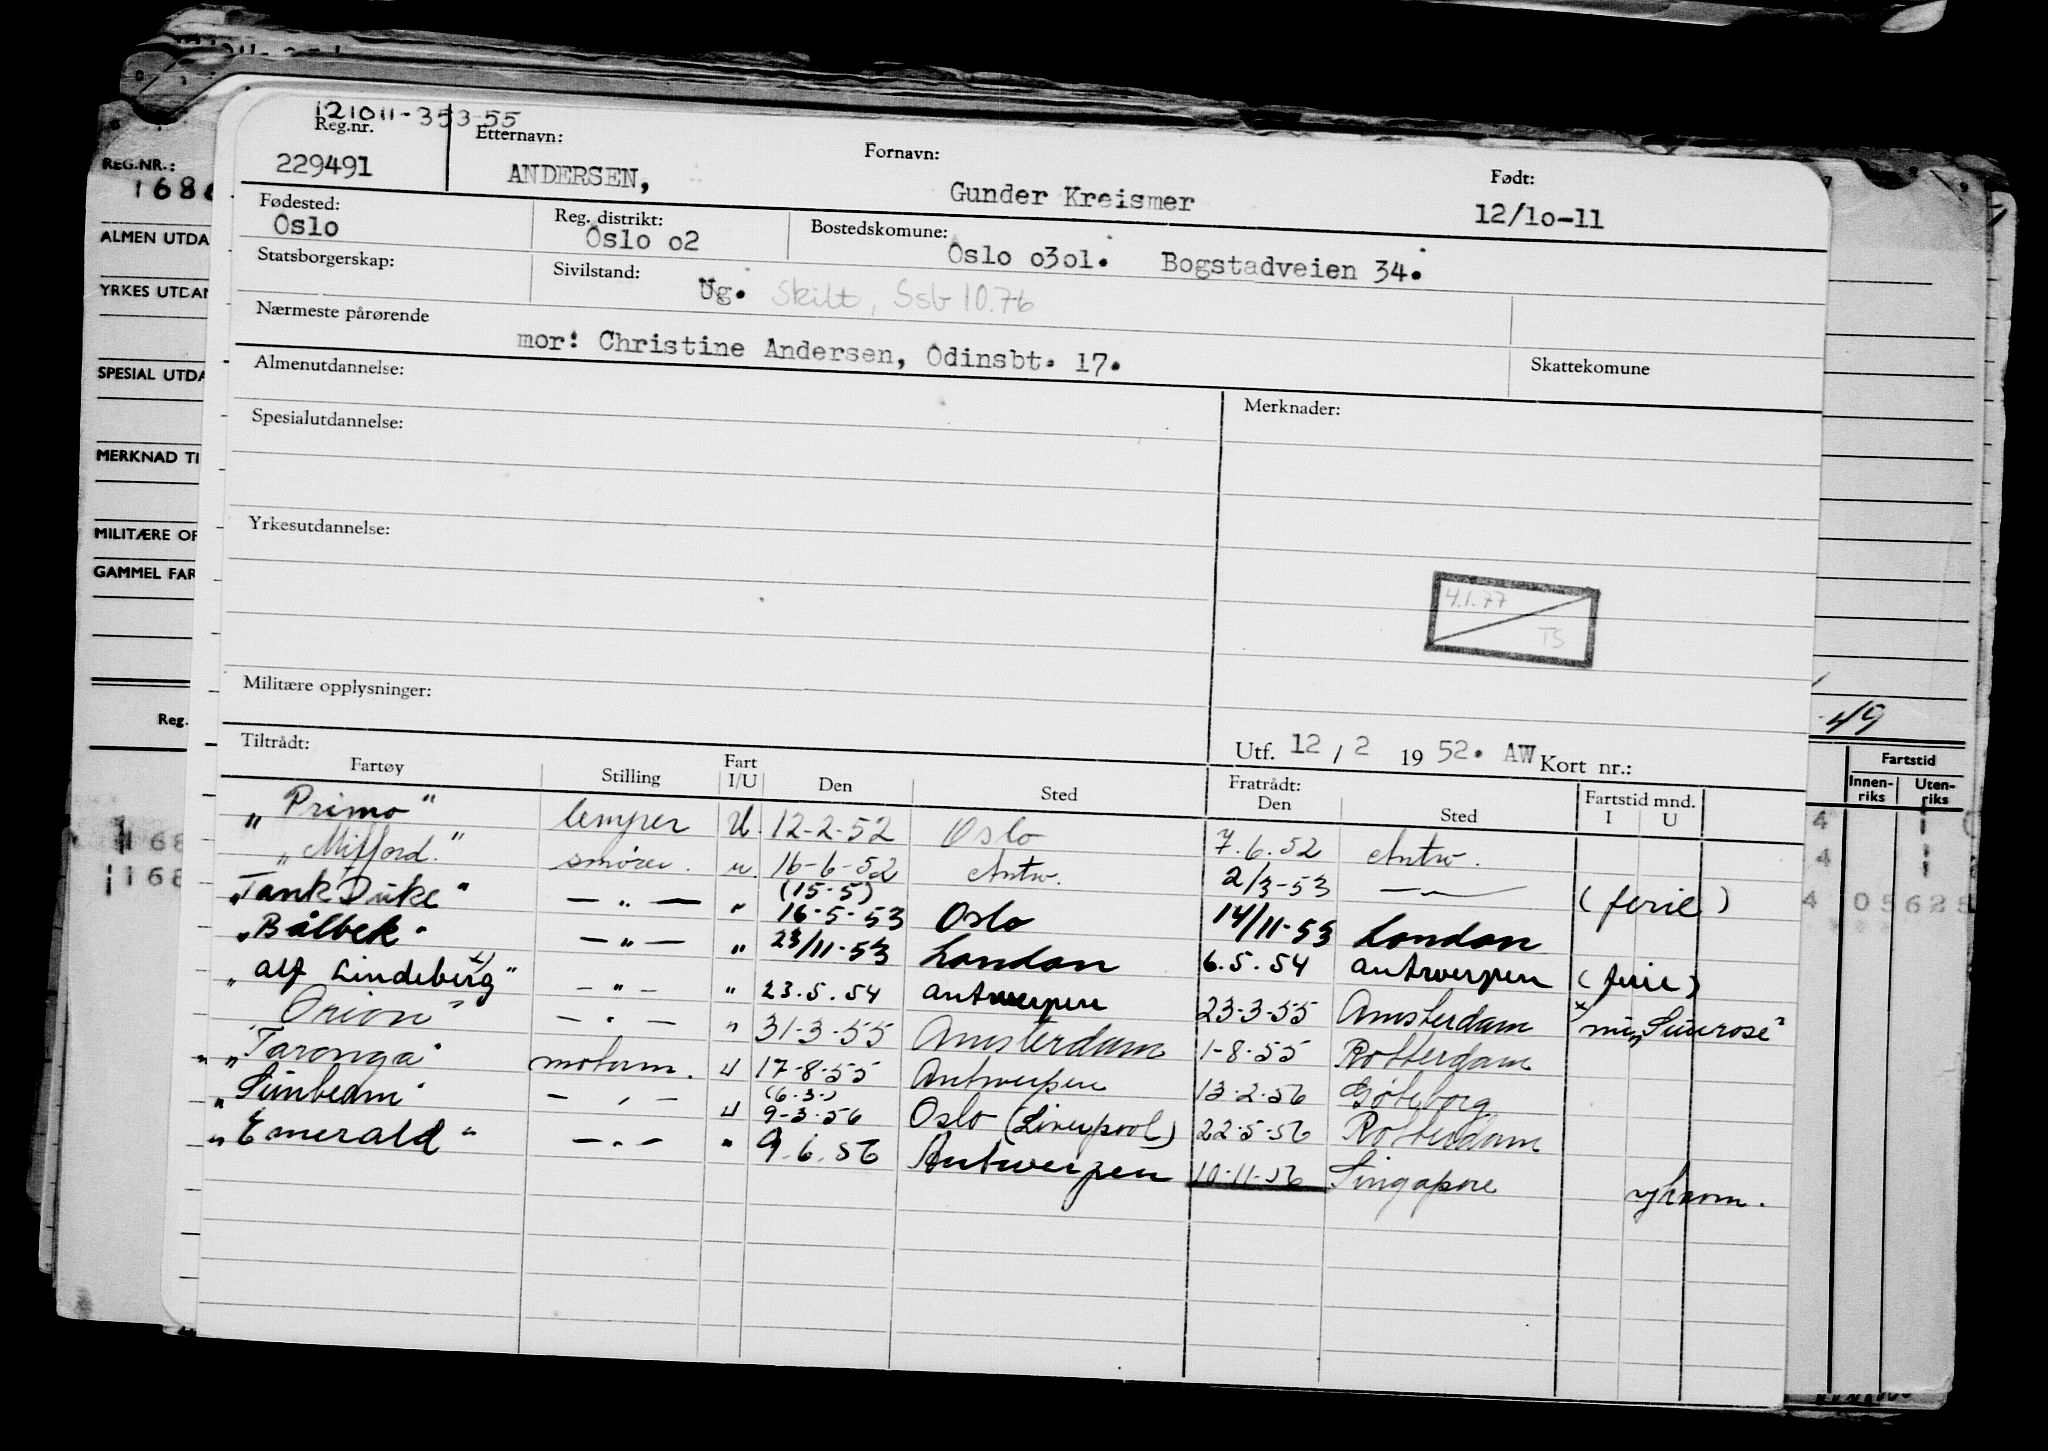 121011-353-55
Reg.nr. Etternavn: Fornavn: Født:
229491 ANDERSEN, Gunder Kreismer 12/1o-11
Fødested: Reg. distrikt: Bostedskomune:
Oslo Oslo o2 Oslo o3o1. Bogstadveien 34.
Statsborgerskap: Sivilstand: Ug. Skilt, Ssb 10.76
Nærmeste pårørende
mor: Christine Andersen, Odinsbt. 17. Skattekomune
Almenutdannelse: Merknader:
Spesialutdannelse:
Yrkesutdannelse:
4.1.77
TS
Militære opplysninger:
Utf. 12 / 2 1952. AW Kort nr.:
Tiltrådt: Fratrådt:
Fartøy Stilling Fart I/U Den Sted Den Sted Fartstid mnd. I U
"Primo" lemper U. 12-2-52 Oslo 7.6.52 Antw.
"Milford." smører. u. 16-6-52 Antw. 2/3-53 — " — (ferie)
"Tank Duke" — " — " (15-5) 16-5-53 Oslo 14/11-53 London
"Bålbek" — " — " 23/11-53 London 6.5.54 Antwerpen (ferie)
"Alf Lindeberg" x) — " — " 23.5.54 Antwerpen 23-3-55 Amsterdam x "Sunrose"
"Orion" — " — " 31-3-55 Amsterdam 1-8-55 Rotterdam
"Taronga" motorm. u 17-8-55 Antwerpen 13-2-56 Göteborg
"Sunbeam" — " — u (6.3.) 9-3-56 Oslo (Liverpool) 22-5-56 Rotterdam
"Emerald" — " — " 9.6.56 Antwerpen 10-11-56 Singapore
REG.NR.:
ALMEN UTDA
YRKES UTDAN
SPESIAL UTDA
MERKNAD TI
MILITÆRE OP
GAMMEL FAR
Reg.
168
168
49
Fartstid
Innen-riks Uten-riks
4
4
4 05625